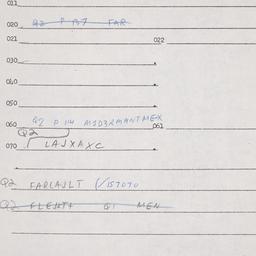 011
020 Q2 P 137 FAR
021 022
030
040
050
060 Q2 P 14 M1D3RMANTMEX 061
Q2
070 LAJXAXC
Q2 FARLAULT (/157070
Q2 FLEHTT GI MEN